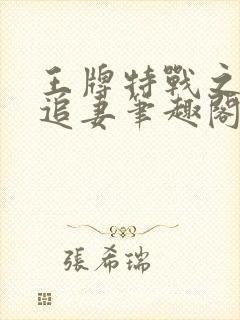 王牌特戰之
追妻筆趣閣
張希瑞